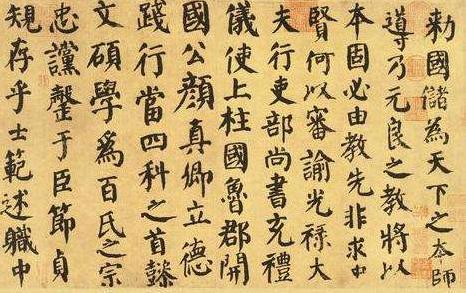 勅國儲為天下之本師
導乃元良之教將以
本固必由教先非求忠
賢何以審諭光祿大
夫行吏部尚書充禮
儀使上柱國魯郡開
國公顏真卿立德
踐行當四科之首懿
文碩學爲百氏之宗
忠讜罄于臣節貞
規存乎士範述職中